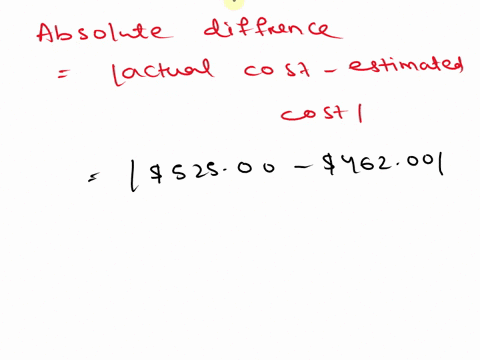 Absolute diffrence
= |actual cost - estimated
cost|
= |$525.00 - $462.00|